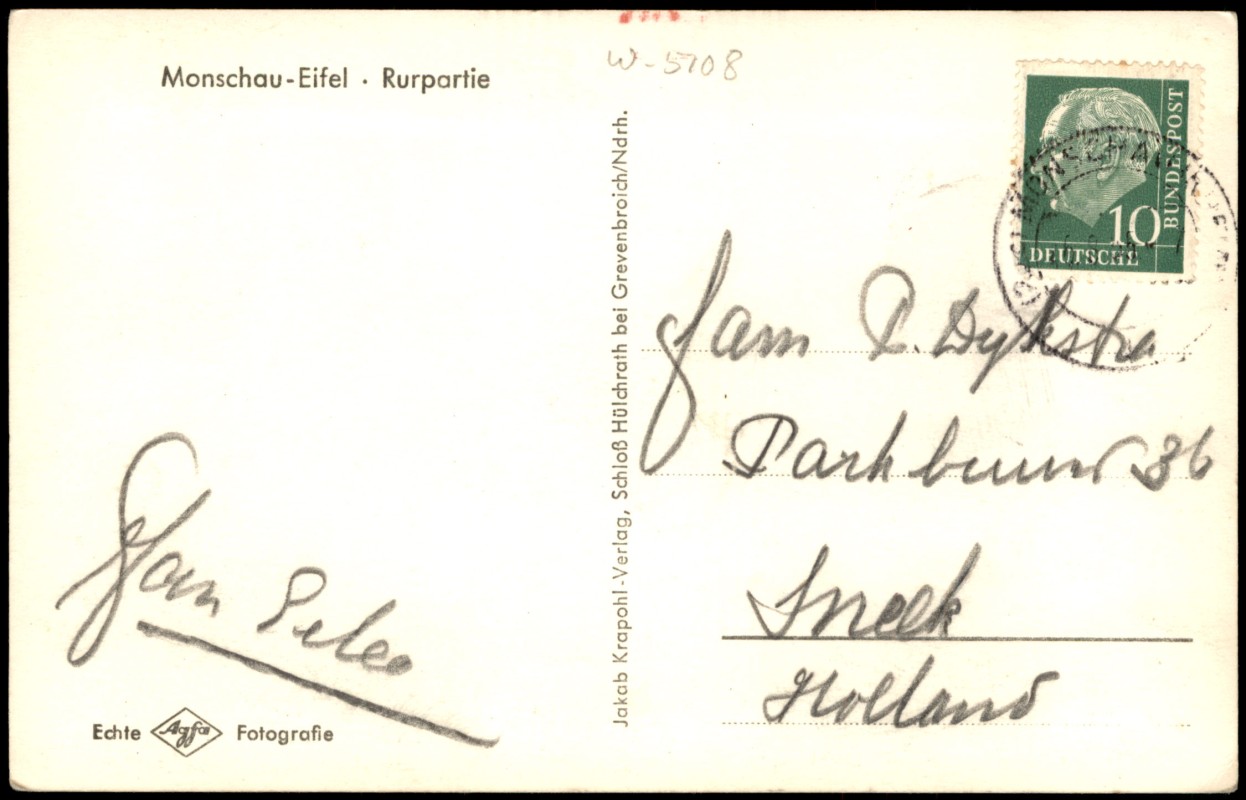 Monschau-Eifel · Rurpartie
W-5108
BUNDESPOST
10
DEUTSCHE
MONSCHAU
Jakab Krapohl-Verlag, Schloß Hülchrath bei Grevenbroich/Ndrh.
Fam P. Dykstra
Parkbuurt 36
Sneek
Holland
Echte Agfa Fotografie